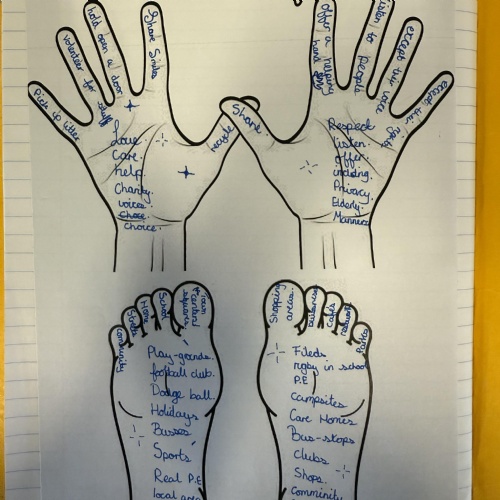 Pick up litter
volunteer for stuff
hold open a door
Share Smiles
recycle
Love.
Care.
help.
Charity.
voices.
Chose
Choice.
Share
offer a helping hand
listen to people
except their voice
except their
Respect
listen.
offer.
including.
Privacy.
Elderly.
Manners
community
Streets
Home
School
town centers/ squares
Play-grounds.
football club.
Dodge ball.
Holidays
Busses
Sports
Real P.E
local area
Shopping areas.
Cafes
Parks
Fileds
rugby in school
P.E
campsites
Care Homes
Bus-stops
Clubs
Shops.
Community